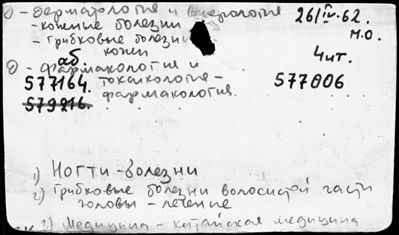 1) - дерматология и венерология 26/IV-62.
- кожные болезни М.О.
- грибковые болезни кожи 4 чит.
2) - фармакология и
аб.
577164. токсикология - 577006
579216. фармакология.
1) Ногти - болезни
2) Грибковые болезни волосистой части
головы - лечение
2) Медицина - китайская медицина